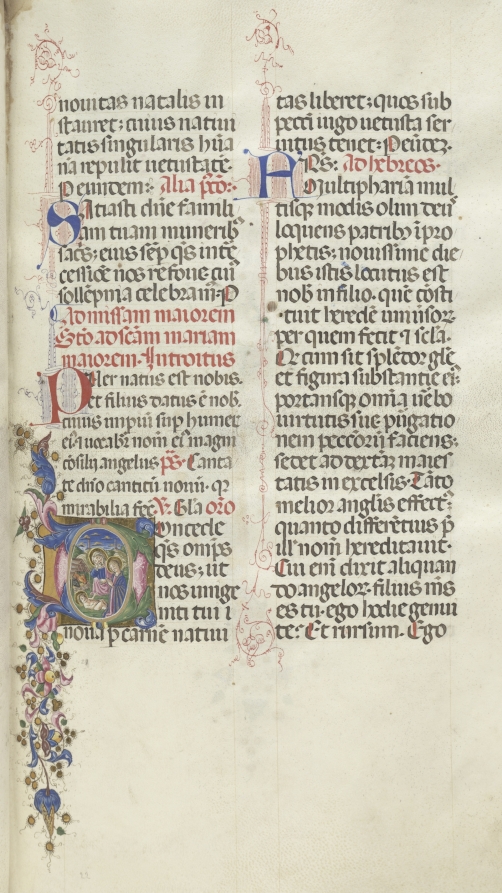 nouitas natalis in
stauret; cuius natiui
tatis singularis hūa
nā repulit uetustatē
P eundem: Alia p̄co:
Satiasti dn̄e famili
am tuam munerib
sac̄s; eius semp̄ q̄s inte
cessiōe nos refoue cui
sollēpnia celebram̄. P
Ad missam maiorem
Sto ad scām mariam
maiorem. Introitus
Puer natus est nobis.
et filius datus ē nob̄.
cuius impiū sup̄ humer
ei⁹ uocabit̄ nom̄ ei⁹ magni
cōsilii angelus p̄s. Canta
te dn̄o canticū nouū. qr̄
mirabilia fec̄. V. Gl̄a orō
Concede
q̄s omp̄s
deus; ut
nos unige
niti tui i
noua p̄ carnē natiui
tas liberet; quos sub
peccī iugo uetusta ser
uitus tenet. P eūdez.
Ad hebreos.
Multiphariā mul
tisq modis olim deus
loquens patrib ī pro
phetis; nouissime die
bus istis locutus est
nob̄ in filio. quē cōsti
tuit heredē uniūsor̄.
per quem fecit ⁊ sc̄la.
Qui cum sit splēdor gl̄e
et figura substantie ei⁹
portansq omīa ūebo
uirtutis sue p̄ugatio
nem pecc̄orū faciens;
sedet ad dext̄az maies
tatis in excelsis. Tāto
melior angl̄is effect⁹;
quanto differētius p̄
ill̄ nom̄ hereditauit.
Cui enī dixit aliquan
do angelor̄. filius m̄s
es tu. ego hodie genui
te? Et rursum. Ego